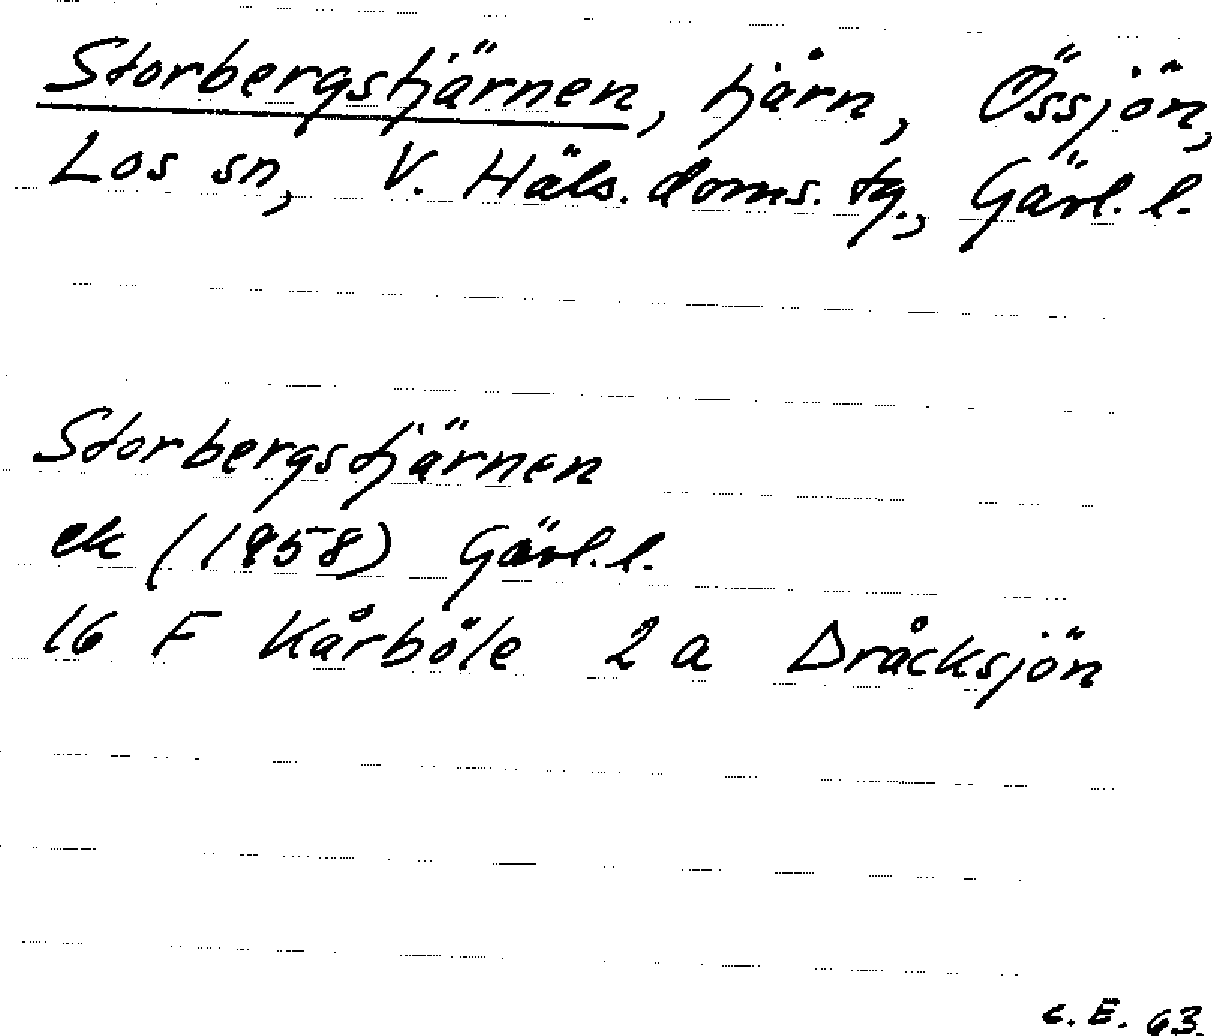 Storbergstjärnen, tjärn, Össjön,
Los sn, V. Häls. doms. tg., Gävl. l.
Storbergstjärnen
ek (1958) Gävl. l.
16 F Kårböle 2 a Dråcksjön
C. E. 63.